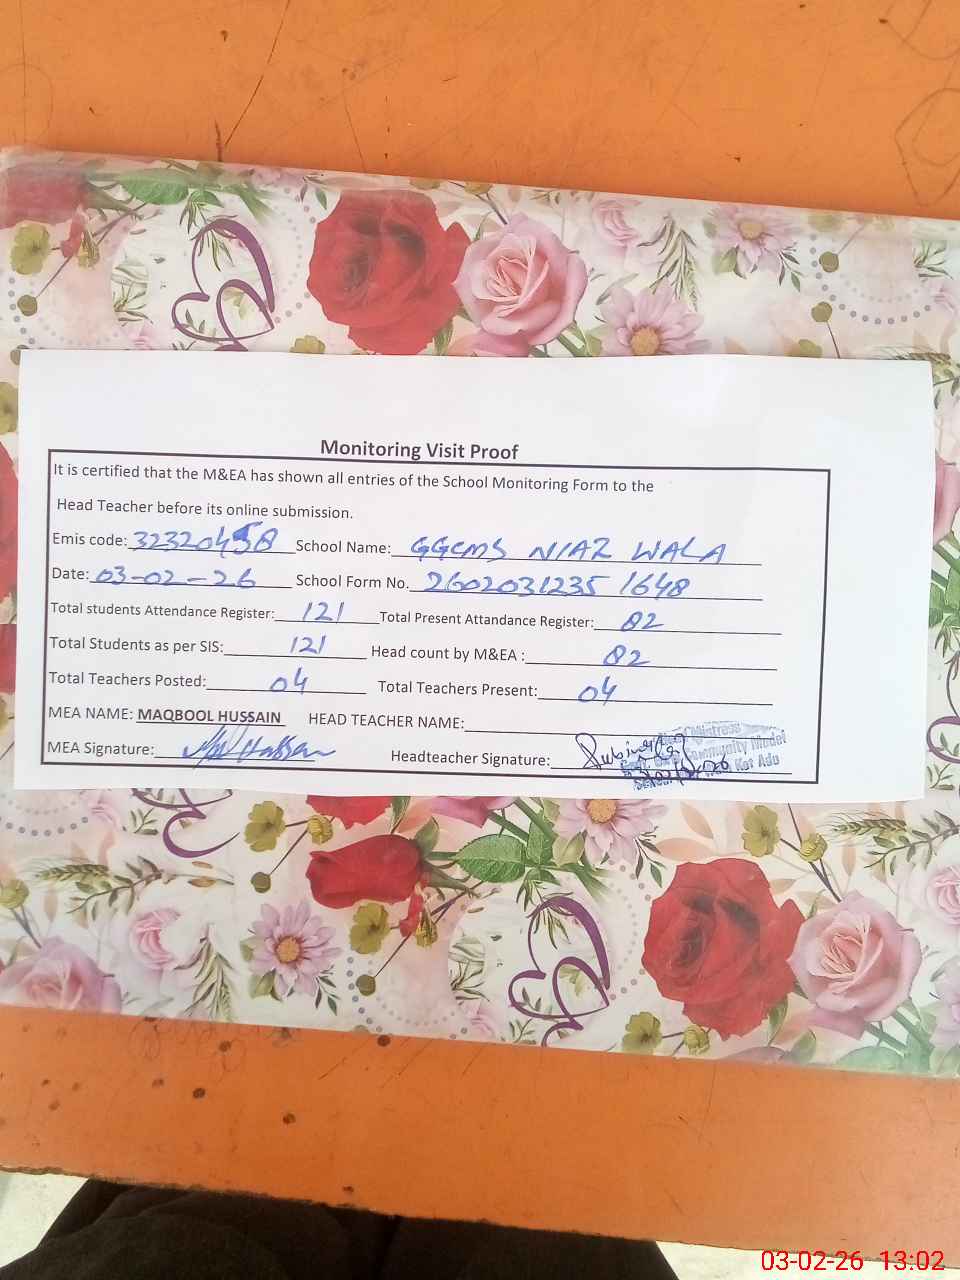 Monitoring Visit Proof
It is certified that the M&EA has shown all entries of the School Monitoring Form to the
Head Teacher before its online submission.
Emis code: 32320458 School Name: GGCMS NIAZ WALA
Date: 03-02-26 School Form No. 26020312351648
Total students Attendance Register: 121 Total Present Attandance Register: 82
Total Students as per SIS: 121 Head count by M&EA : 82
Total Teachers Posted: 04 Total Teachers Present: 04
MEA NAME: MAQBOOL HUSSAIN HEAD TEACHER NAME:
MEA Signature: Headteacher Signature:
Community Model
Kot Adu
03-02-26 13:02